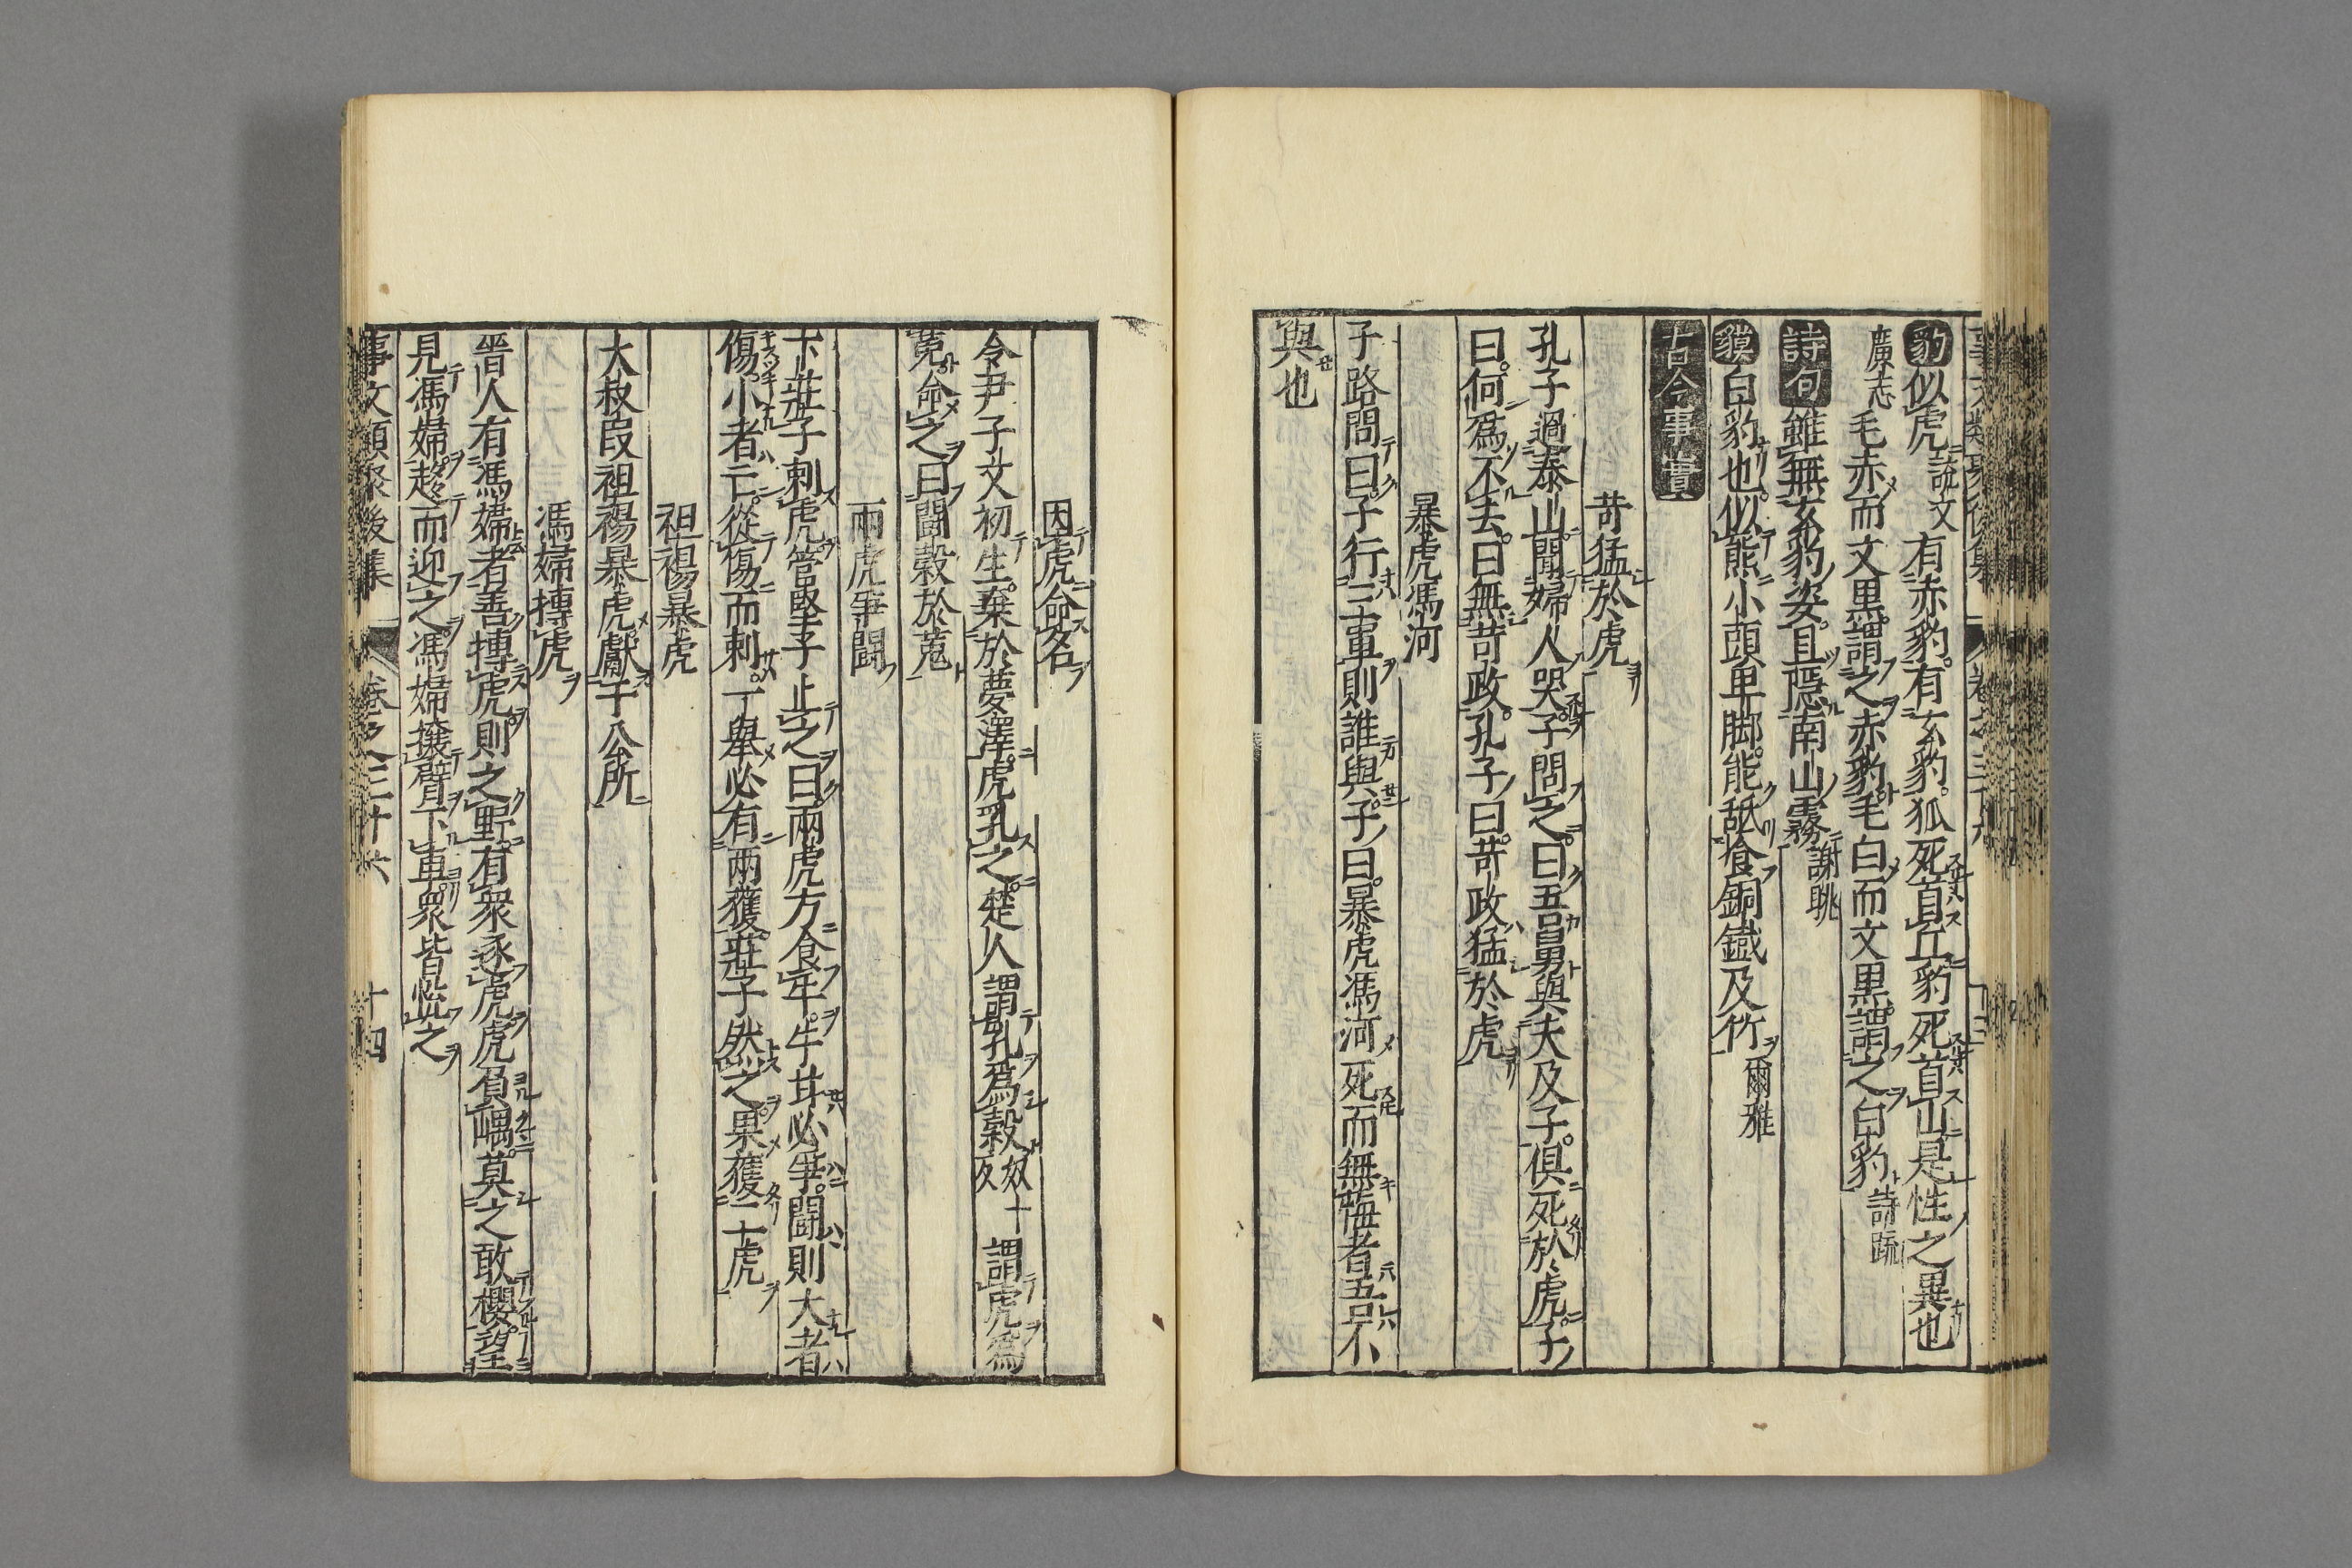 豹似虎說文有赤豹。有玄豹。狐死首丘豹死首山是性之異也
廣志毛赤而文黒謂之赤豹毛白而文黒謂之白豹詩疏
詩句雖無玄豹姿。且隱南山霧謝眺
貘白豹也似熊小頭卑脚。能舐食銅鐵及竹爾雅
古今事實
苛猛於虎
孔子過泰山聞婦人哭。子問之。曰吾舅與夫及子。俱死於虎。子
曰。何爲不去。曰無苛政。孔子曰。苛政猛於虎
暴虎馮河
子路問曰。子行三軍則誰與。子曰。暴虎馮河死而無悔者吾不
與也
因虎命名
令尹子文初生。棄於夢澤。虎乳之。楚人謂乳爲穀奴十反謂虎爲
菟命之曰鬪穀於菟
兩虎爭鬪
卞莊子刺虎管竪子止之曰兩虎方食牛。牛甘必爭。鬪則大者
傷。小者亡。從傷而刺。一舉必有兩獲。莊子然之。果獲二虎
袒裼暴虎
大叔段袒裼暴虎。獻于公所
馮婦搏虎
晋人有馮婦者善搏虎則之野。有衆逐虎虎負嵎。莫之敢櫻。望
見馮婦。趍而迎之。馮婦攘臂下車。衆皆悦之
事文類聚後集 卷之三十六 十四